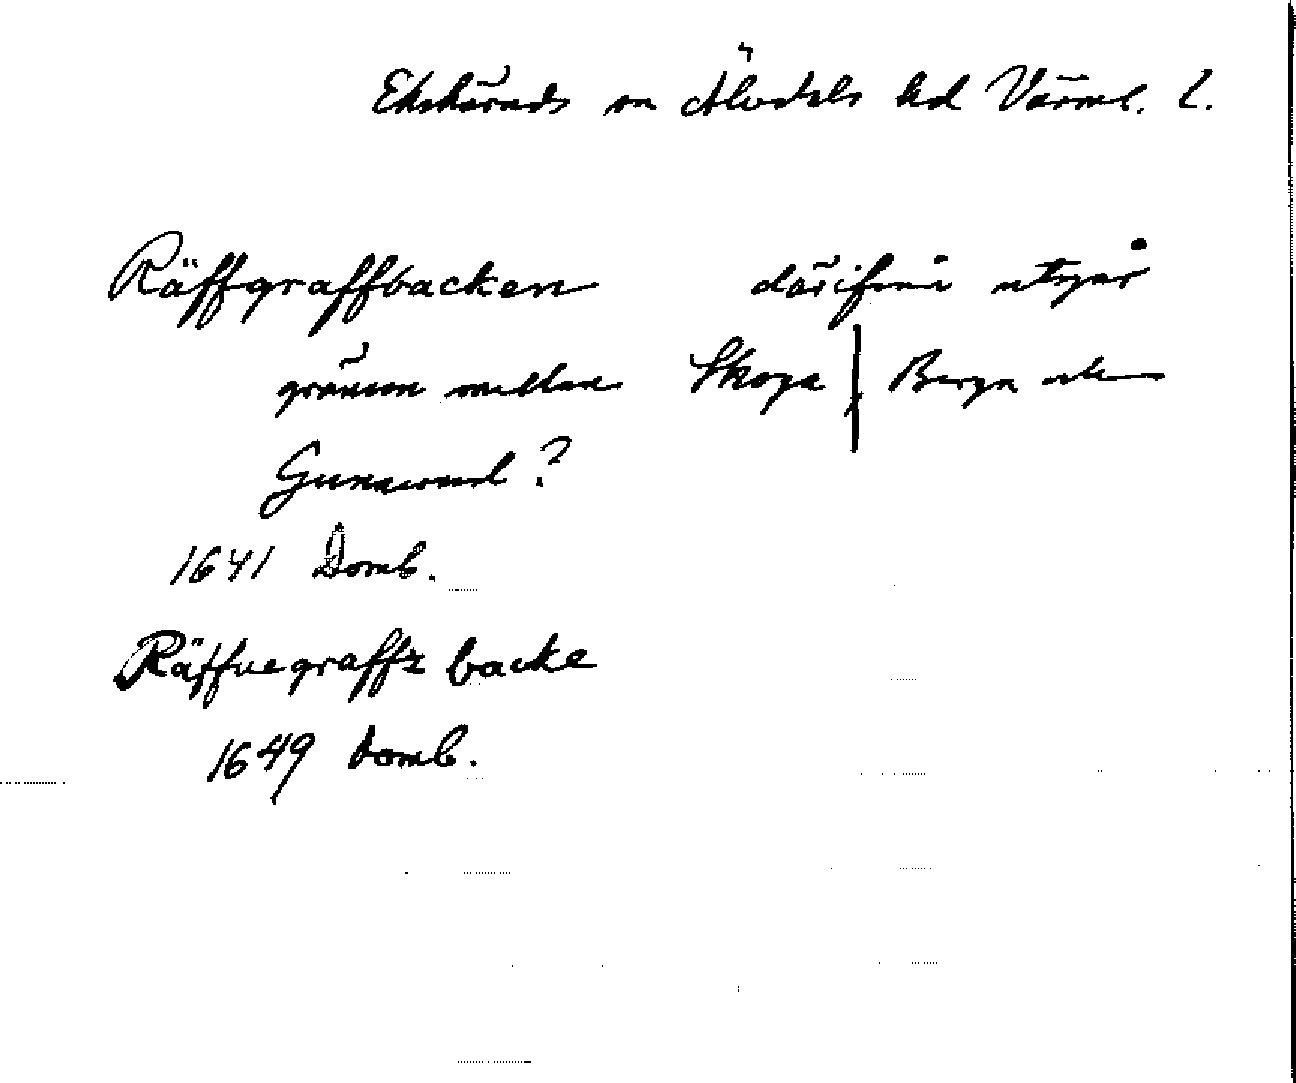 Ekshärads sn Älvdals hd Värml. l.
Räffgraffbacken därifrån utgår
gränsen mellan Skoga | Berga och
Gunnerud ?
1641 Domb.
Räffuegraffz backe
1649 Domb.